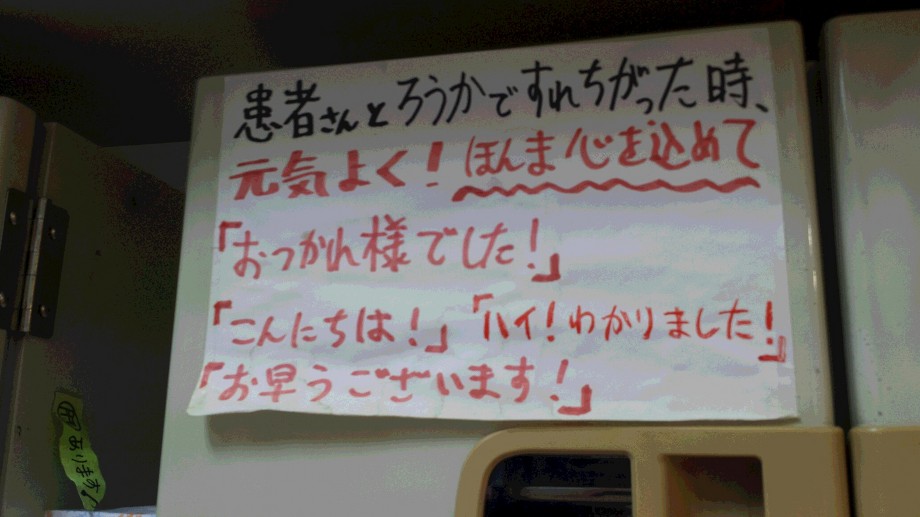 患者さんとろうかですれちがった時、
元気よく!ほんま心を込めて
「おつかれ様でした!」
「こんにちは!」「ハイ!わかりました!」
「お早うございます!」
あります